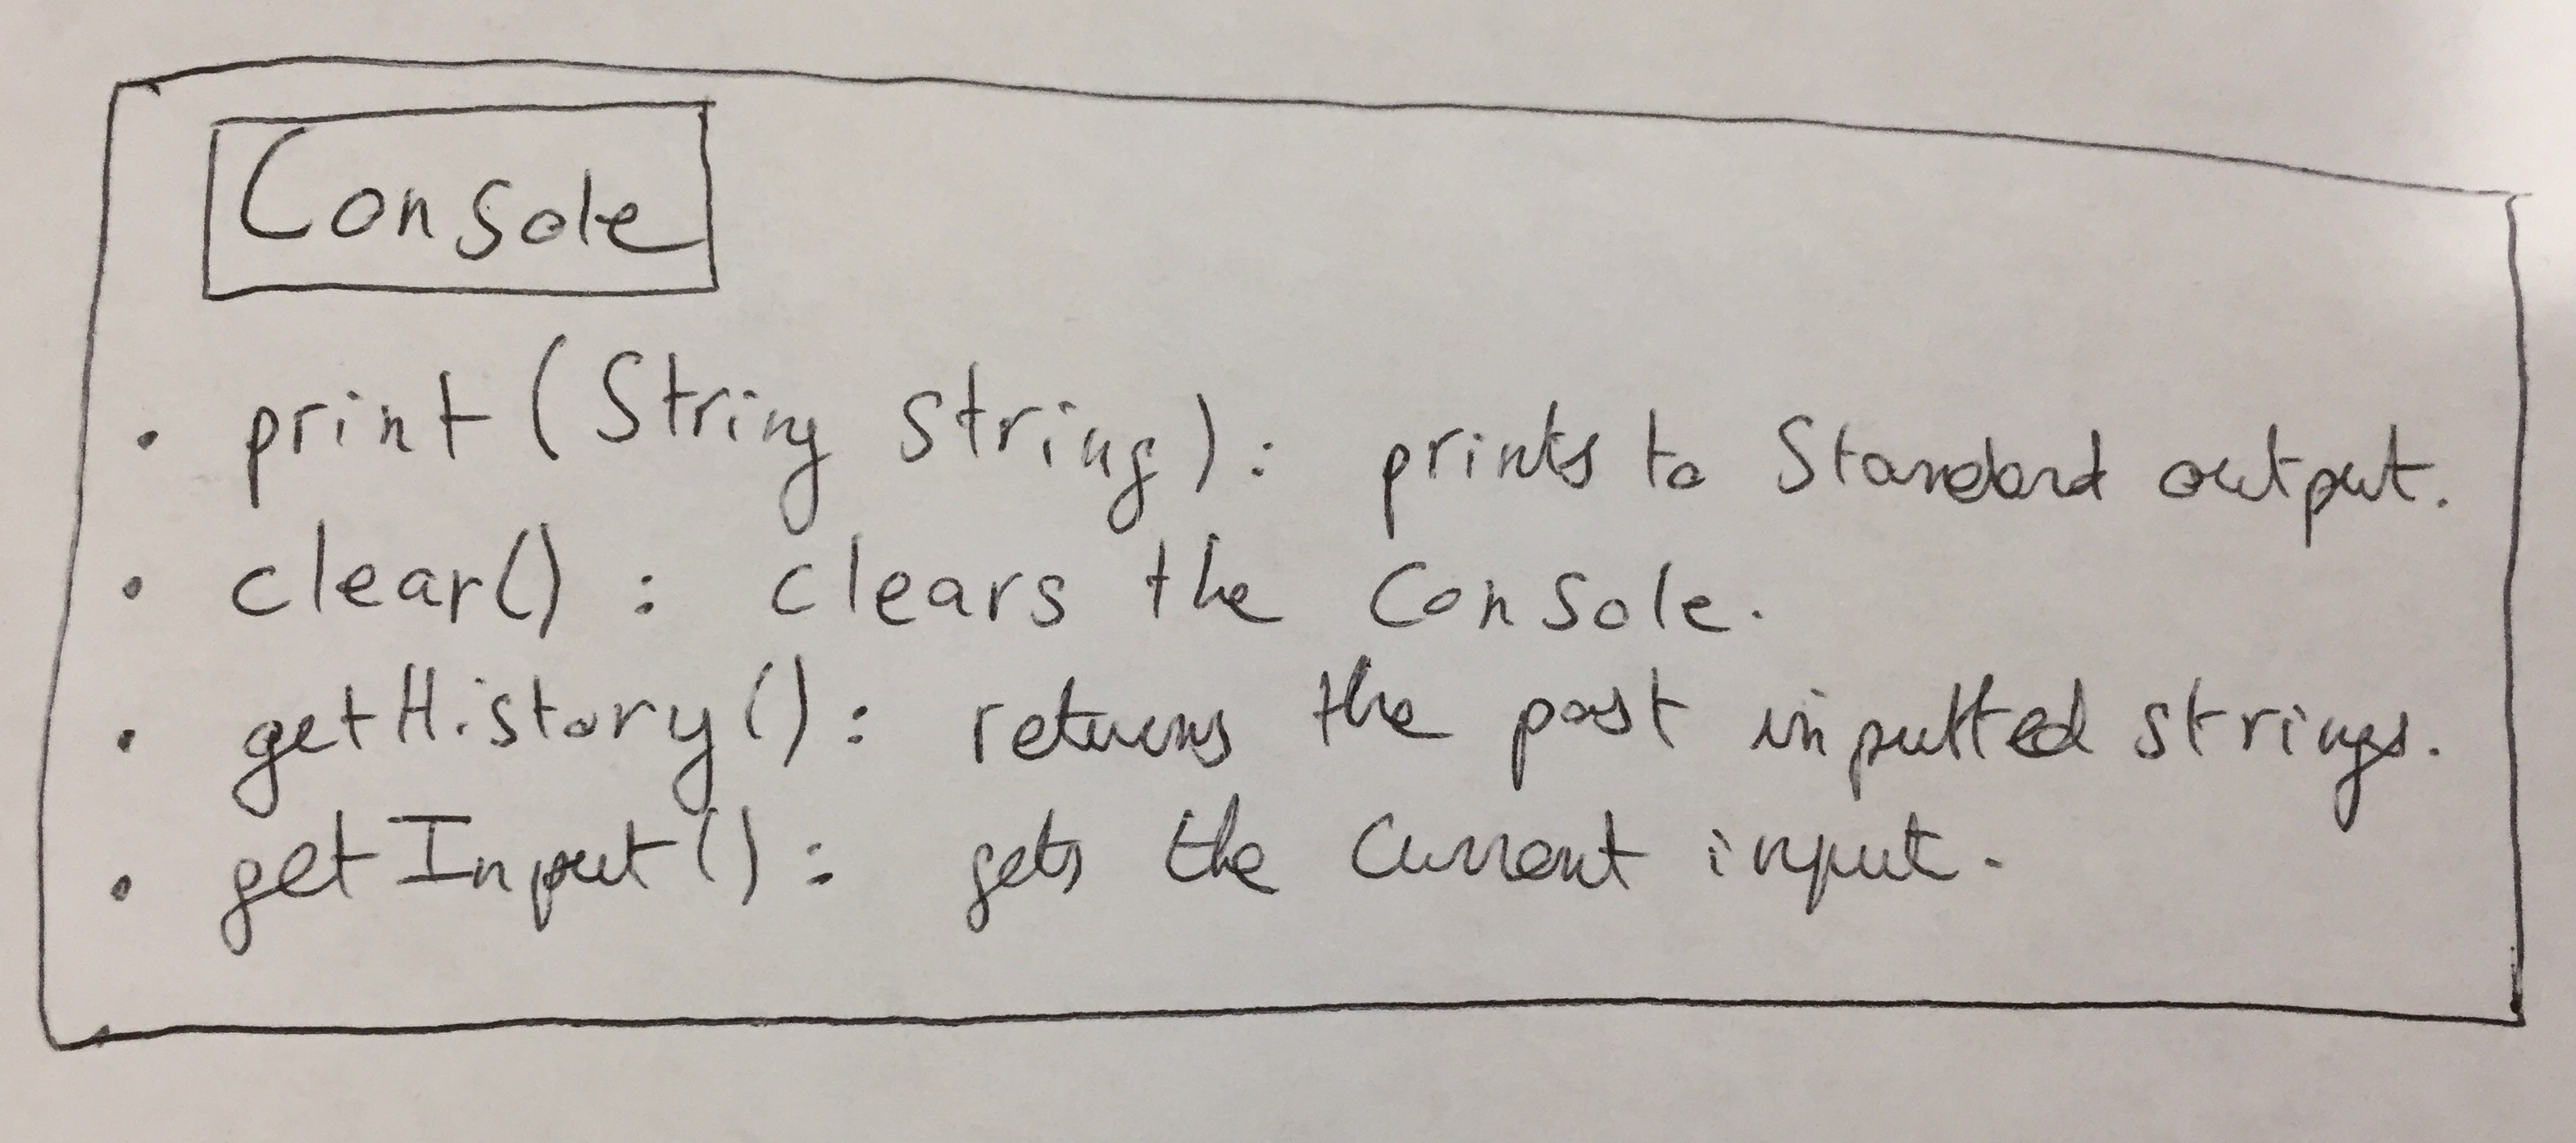 Console
• print (String string) : prints to Standard output.
• clear() : clears the Console.
• getHistory() : returns the past inputted strings.
• getInput() : gets the current input.